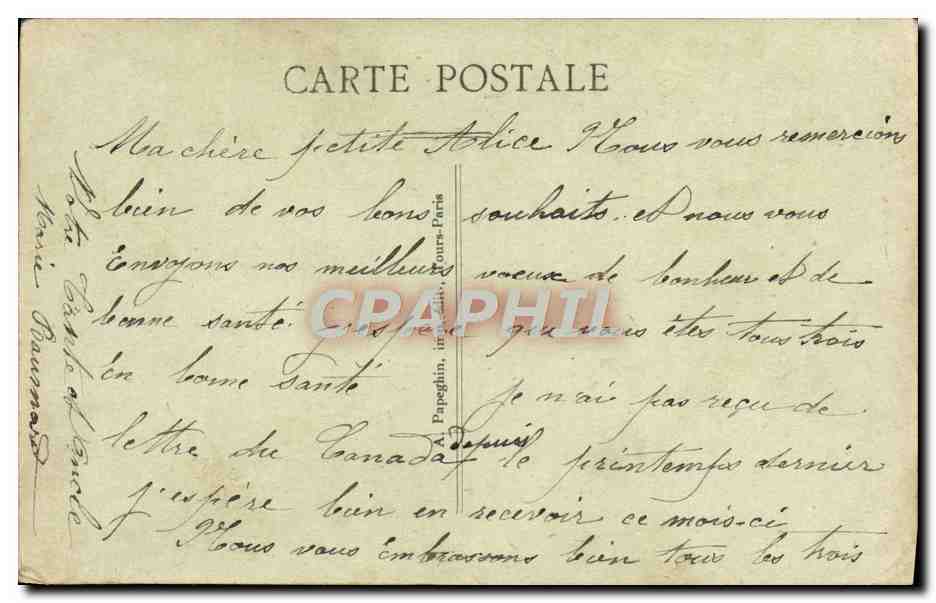 CARTE POSTALE
Ma chère petite Alice Nous vous remercions
bien de vos bons souhaits. et nous vous
Envoyons nos meilleurs voeux de bonheur et de
bonne santé. j'espère que vous êtes tous trois
En bonne Santé
je n'ai pas reçu de
lettre du Canada depuis le printemps dernier
j'espère bien en recevoir ce mois-ci
Nous vous Embrassons bien tous les trois
Votre Tante et Oncle
Marie Baumard
A. Papeghin, imp.-édit., Tours-Paris
CPAPHIL